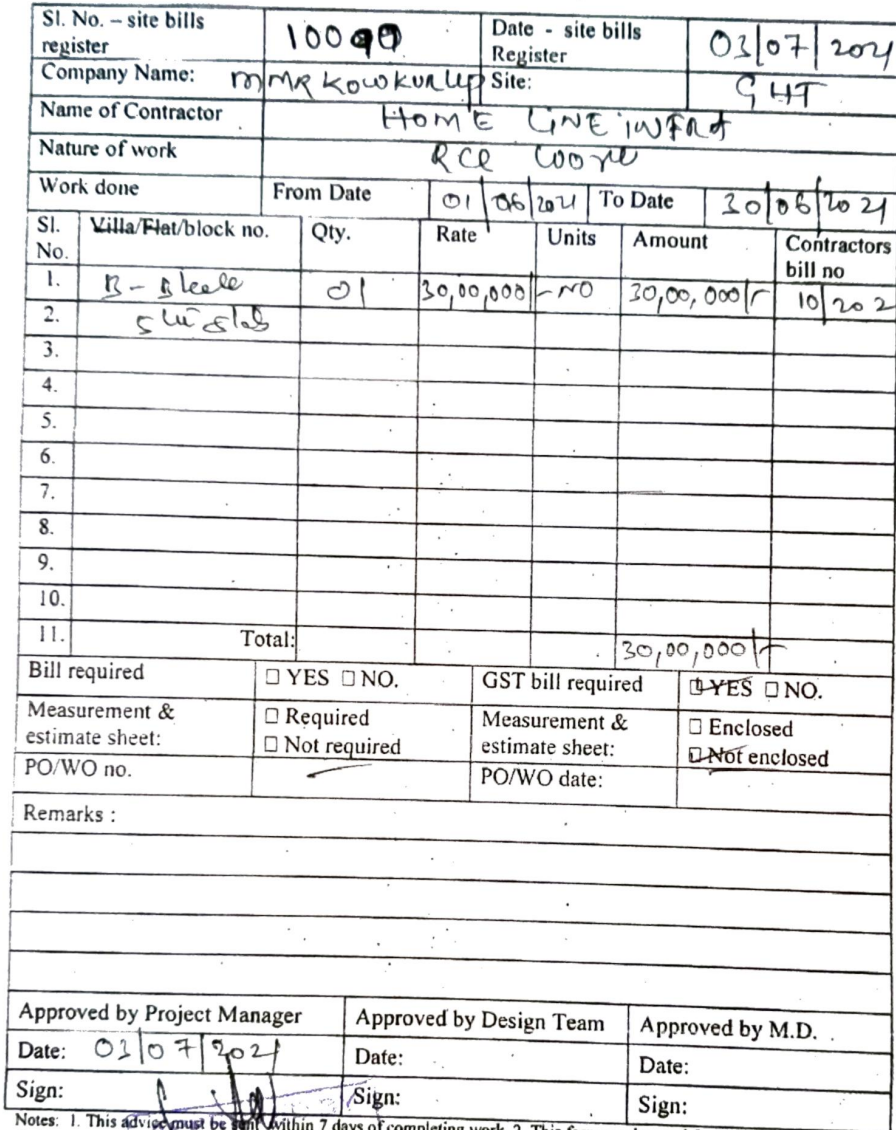 Sl. No. – site bills register 100 Date - site bills Register 03/07/2021
Company Name: MMR KOWKUR LLP Site: GHT
Name of Contractor HOME LINE INFRA
Nature of work RCC
Work done From Date 01/06/2021 To Date 30/06/2021
Sl. No. Villa/Flat/block no. Qty. Rate Units Amount Contractors bill no
1. B- 01 30,00,000/- NO 30,00,000/- 10/202
2. slab
3.
4.
5.
6.
7.
8.
9.
10.
11. Total: 30,00,000/-
Bill required ☐ YES ☐ NO. GST bill required ☐ YES ☐ NO.
Measurement & estimate sheet: ☐ Required ☐ Not required Measurement & estimate sheet: ☐ Enclosed ☐ Not enclosed
PO/WO no. PO/WO date:
Remarks :
Approved by Project Manager Approved by Design Team Approved by M.D.
Date: 03/07/2021 Date: Date:
Sign: Sign: Sign:
Notes: 1. This advice must be sent within 7 days of completing work. 2. This